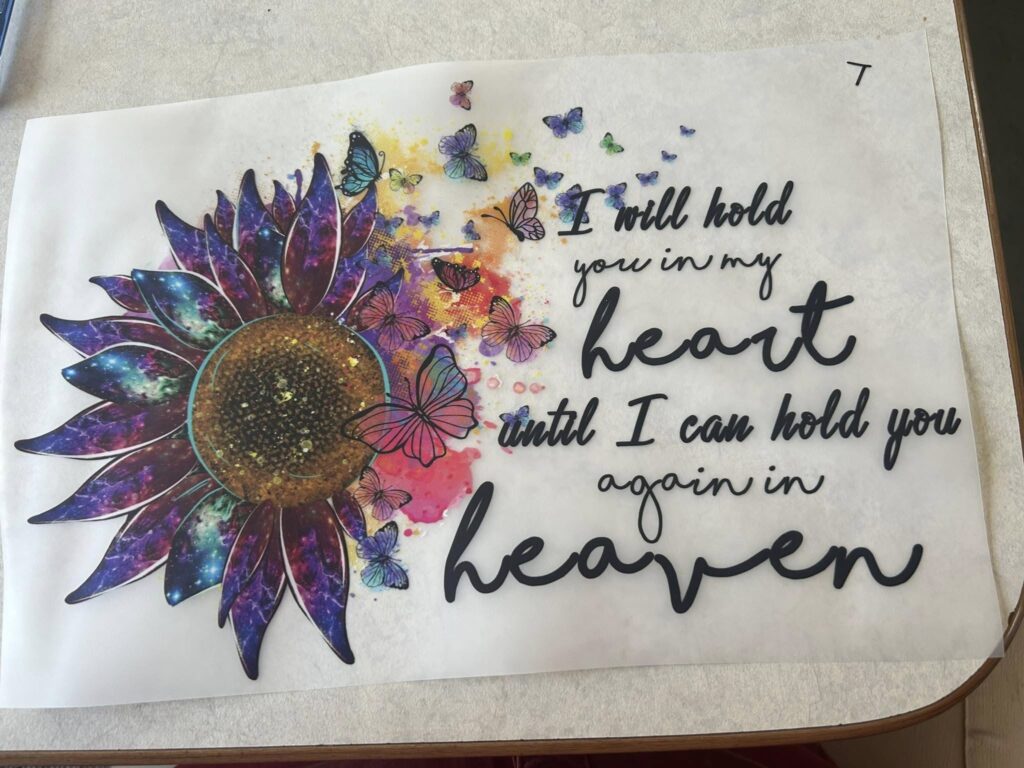 T
I will hold
you in my
heart
until I can hold you
again in
heaven